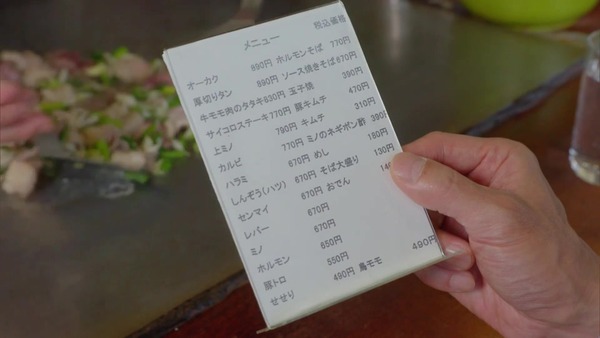 メニュー 税込価格
オーカク 890円 ホルモンそば 770円
厚切りタン 890円 ソース焼きそば 670円
牛モモ肉のタタキ 830円 玉子焼 390円
サイコロステーキ 770円 豚キムチ 470円
上ミノ 790円 キムチ 310円
カルビ 770円 ミノのネギポン酢 390
ハラミ 670円 めし 180円
しんぞう(ハツ) 670円 そば大盛り 130円
センマイ 670円 おでん
レバー 670円
ミノ 670円
ホルモン 650円
豚トロ 550円
せせり 490円 鳥モモ 490円